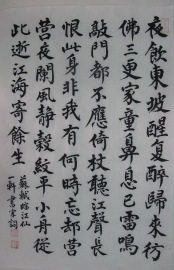 夜飲東坡醒复醉歸來彷
佛三更家童鼻息已雷鳴
敲門都不應倚杖聽江聲長
恨此身非我有何時忘却營
營夜闌風靜縠紋平小舟從
此逝江海寄餘生
蘇軾臨江仙
一軒書宋詞